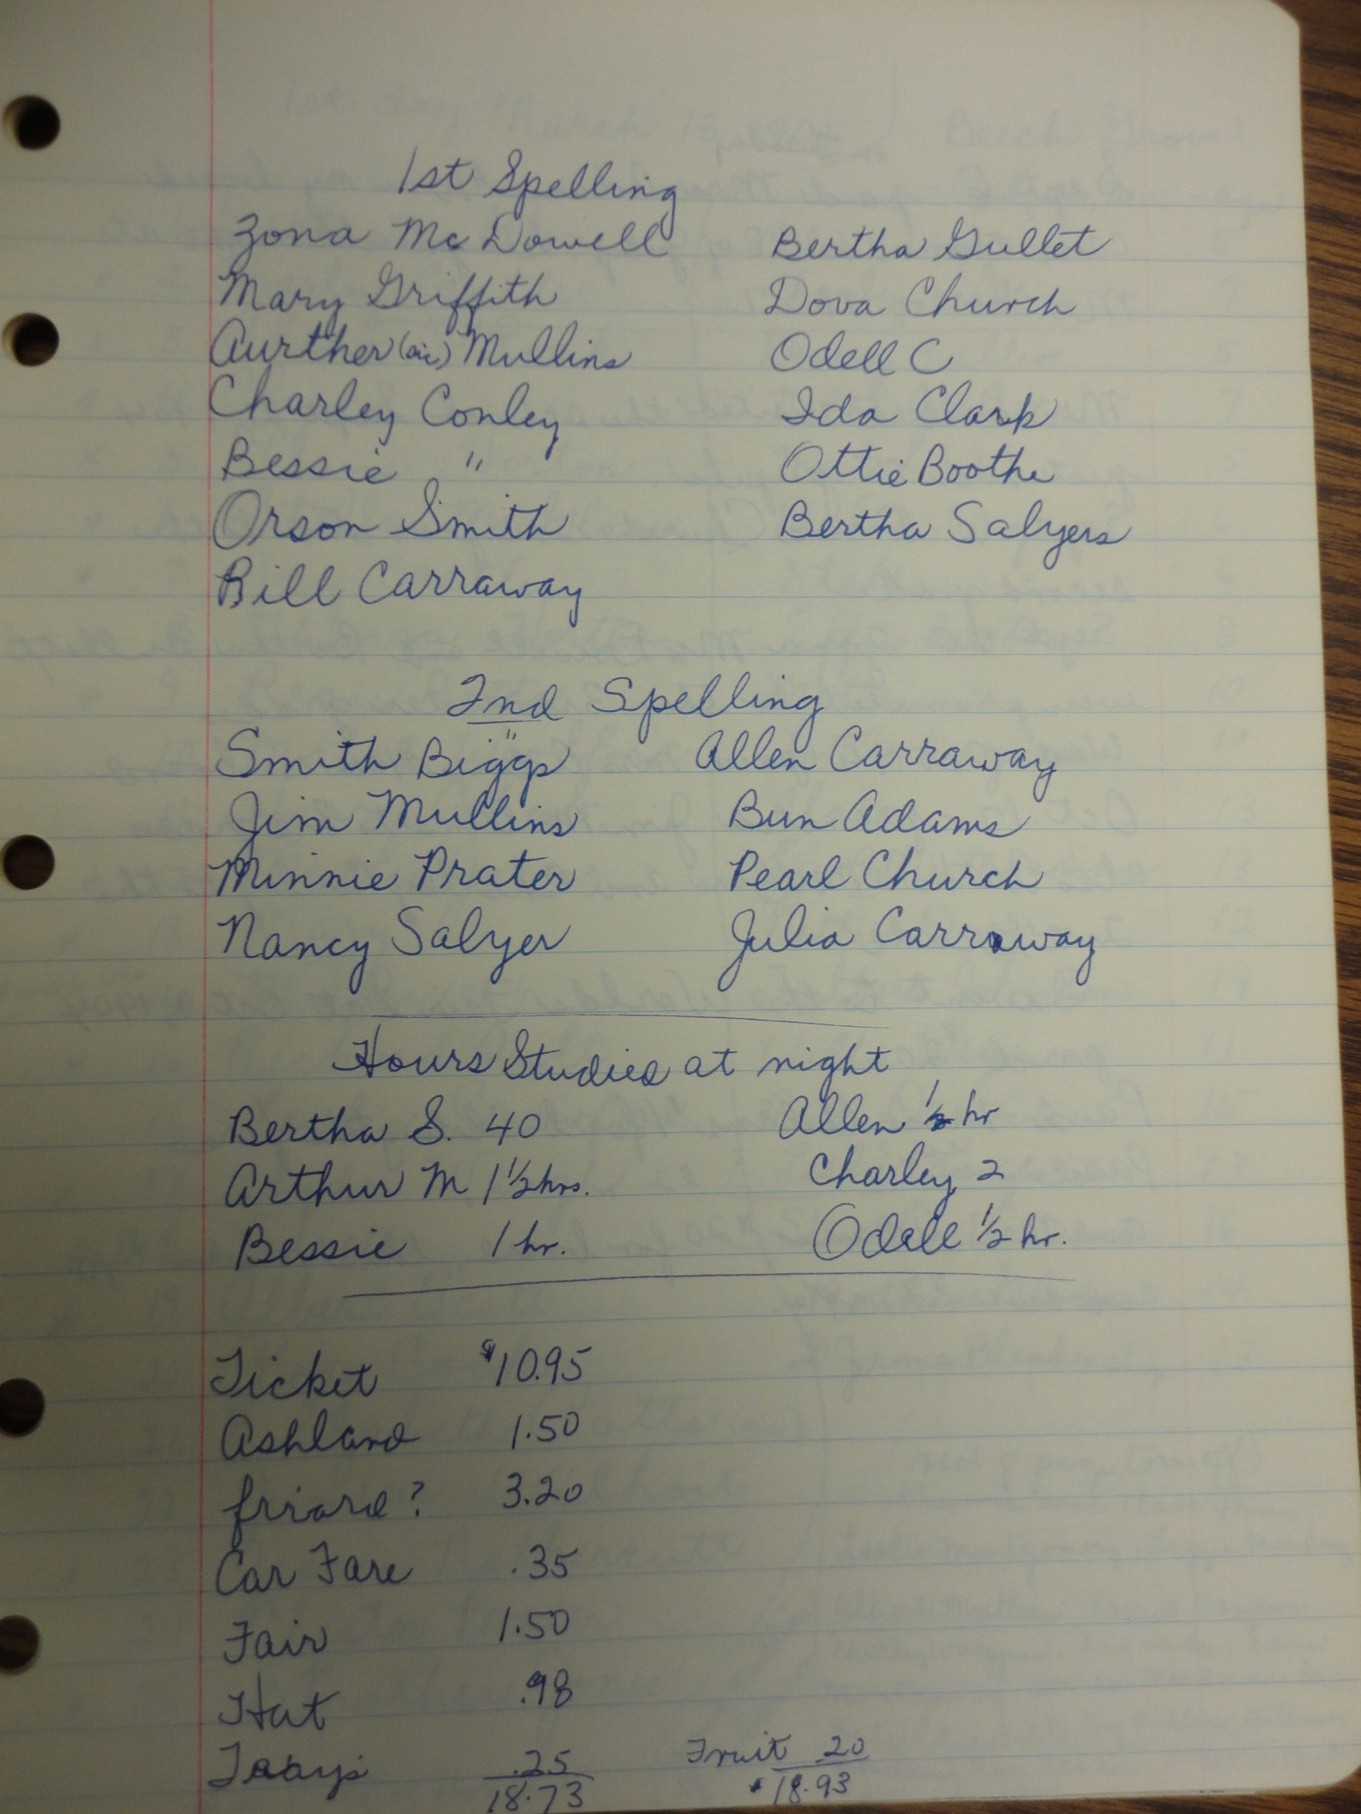 1st Spelling
Zona McDowell Bertha Gullet
Mary Griffith Dova Church
Aurther (sic) Mullins Odell C
Charley Conley Ida Clark
Bessie " Ottie Boothe
Orson Smith Bertha Salyers
Bill Carraway
2nd Spelling
Smith Biggs Allen Carraway
Jim Mullins Bun Adams
Minnie Prater Pearl Church
Nancy Salyer Julia Carraway
Hours Studied at night
Bertha S. 40 Allen 1/2 hr
Arthur M 1 1/2 hrs. Charley 2
Bessie 1 hr. Odell 1/2 hr.
Ticket $10.95
Ashland 1.50
friard? 3.20
Car Fare .35
Fair 1.50
Hat .98
.25 Fruit 20
18.73 18.93